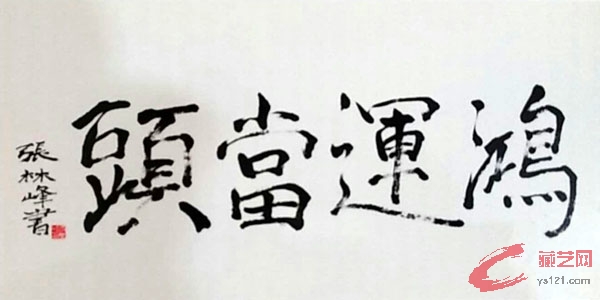 鴻運當頭
張林峰書
藏艺网
ys121.com